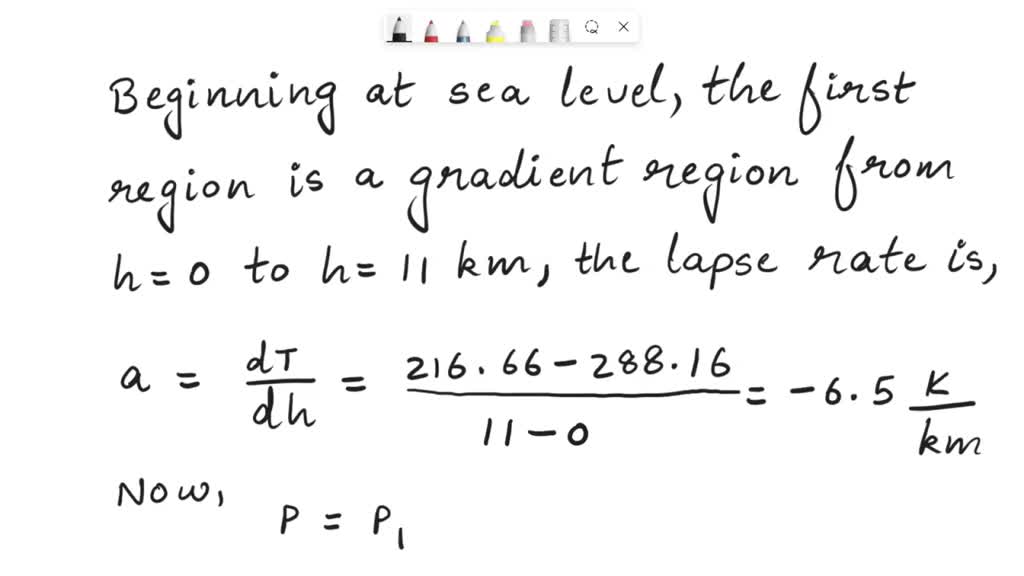 Beginning at sea level, the first
region is a gradient region from
h = 0 to h = 11 km, the lapse rate is,
a = dT/dh = (216.66 - 288.16)/(11 - 0) = -6.5 K/km
Now,
P = P₁